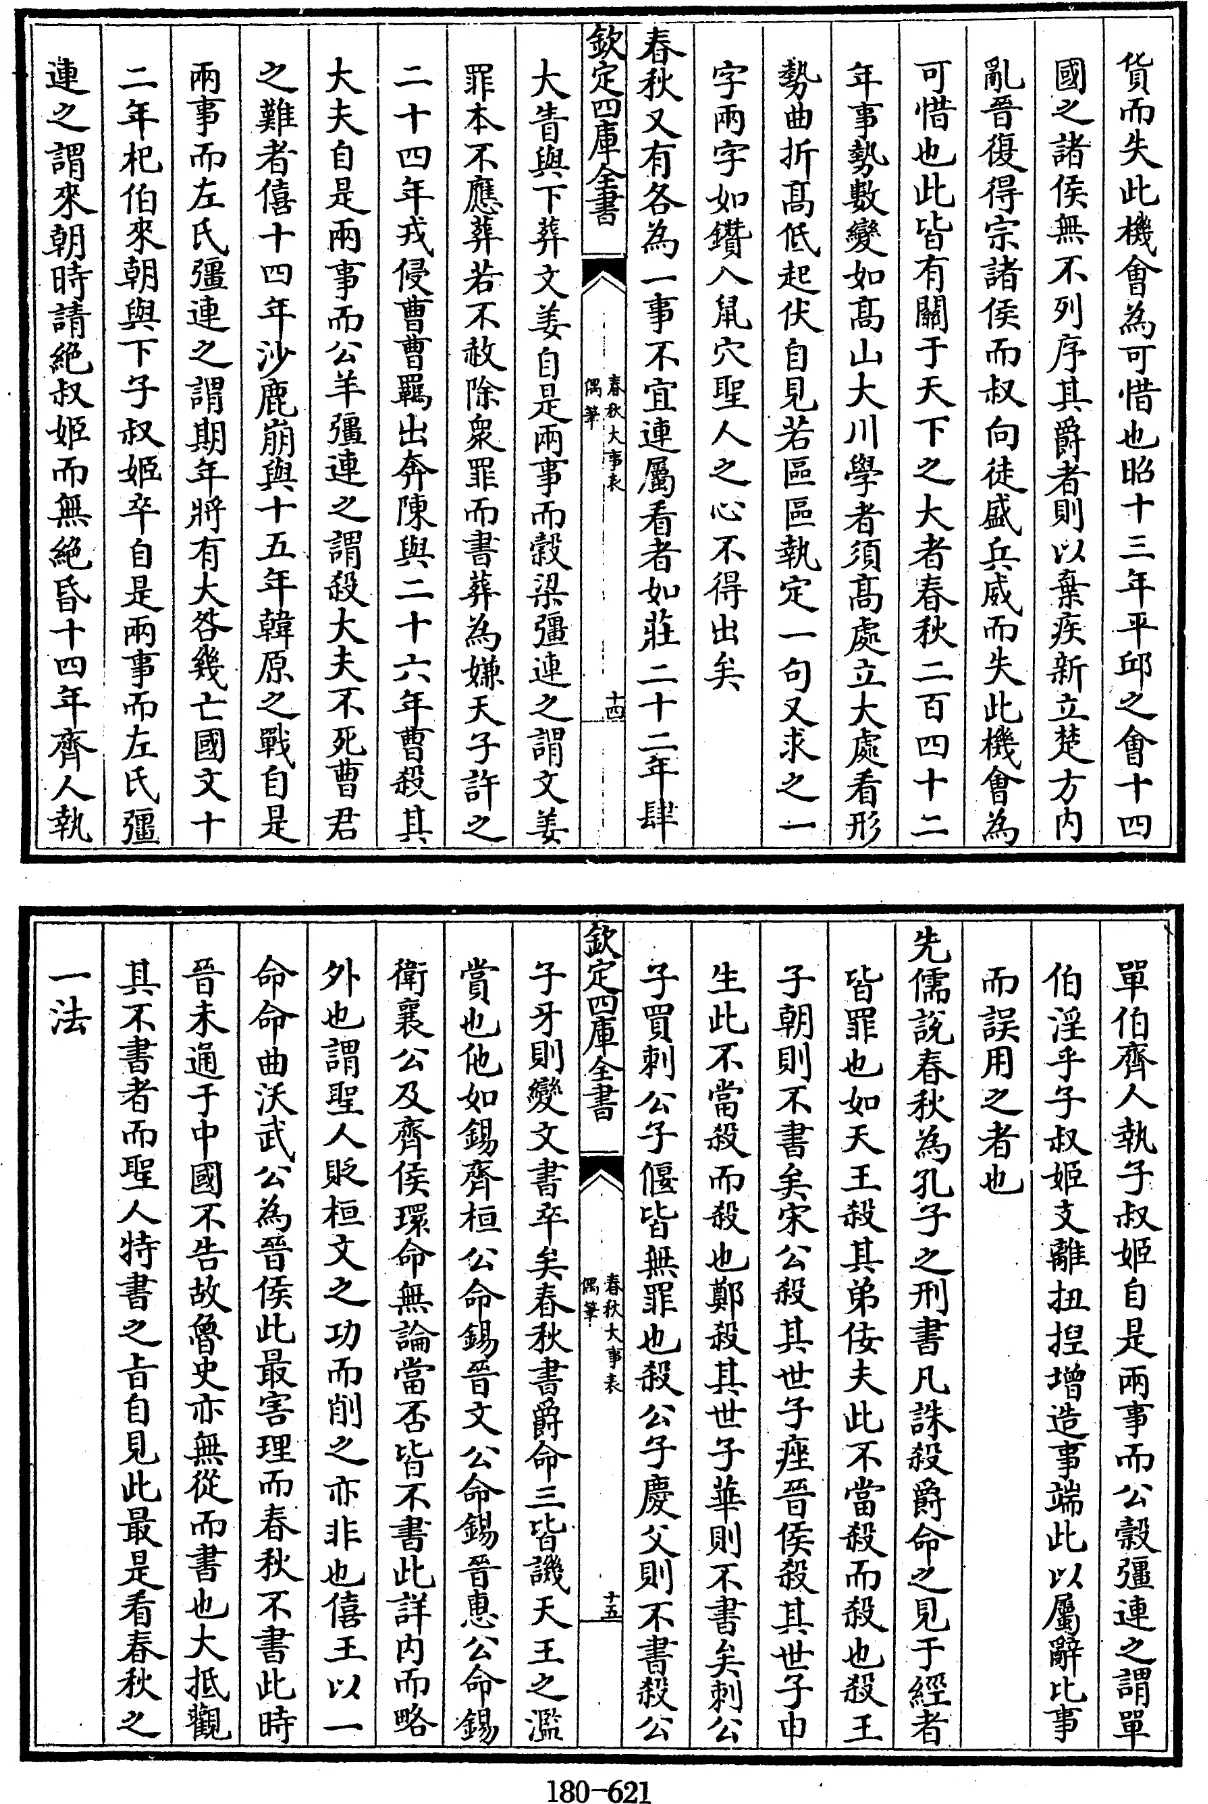 貨而失此機會為可惜也昭十三年平邱之會十四
國之諸侯無不列序其爵者則以棄疾新立楚方內
亂晉復得宗諸侯而叔向徒盛兵威而失此機會為
可惜也此皆有關于天下之大者春秋二百四十二
年事勢數變如髙山大川學者須髙處立大處看形
勢曲折髙低起伏自見若區區執定一句又求之一
字兩字如鑽入鼠穴聖人之心不得出矣
春秋又有各為一事不宜連屬看者如莊二十二年肆
欽定四庫全書
春秋大事表
偶筆
十四
大眚與下葬文姜自是兩事而穀梁彊連之謂文姜
罪本不應葬若不赦除衆罪而書葬為嫌天子許之
二十四年戎侵曹曹羈出奔陳與二十六年曹殺其
大夫自是兩事而公羊彊連之謂殺大夫不死曹君
之難者僖十四年沙鹿崩與十五年韓原之戰自是
兩事而左氏彊連之謂期年將有大咎幾亡國文十
二年杞伯來朝與下子叔姬卒自是兩事而左氏彊
連之謂來朝時請絕叔姬而無絕昏十四年齊人執
單伯齊人執子叔姬自是兩事而公穀彊連之謂單
伯淫乎子叔姬支離扭揑增造事端此以屬辭比事
而誤用之者也
先儒說春秋為孔子之刑書凡誅殺爵命之見于經者
皆罪也如天王殺其弟佞夫此不當殺而殺也殺王
子朝則不書矣宋公殺其世子痤晉侯殺其世子申
生此不當殺而殺也鄭殺其世子華則不書矣刺公
子買刺公子偃皆無罪也殺公子慶父則不書殺公
欽定四庫全書
春秋大事表
偶筆
十五
子牙則變文書卒矣春秋書爵命三皆譏天王之濫
賞也他如錫齊桓公命錫晉文公命錫晉惠公命錫
衛襄公及齊侯環命無論當否皆不書此詳內而略
外也謂聖人貶桓文之功而削之亦非也僖王以一
命命曲沃武公為晉侯此最害理而春秋不書此時
晉未通于中國不告故魯史亦無從而書也大抵觀
其不書者而聖人特書之旨自見此最是看春秋之
一法
180-621